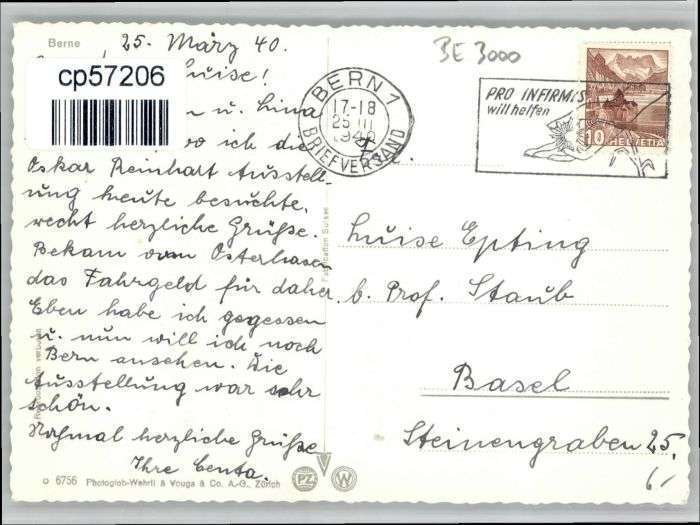 Berne
25. März 40.
BE 3000
Luise!
cp57206
u. Lina
wo ich die
Oskar Reinhart Ausstell-
ung heute besuchte,
recht herzliche Grüße.
Bekam vom Osterhasen
das Fahrgeld für daher.
Eben habe ich gegessen
u. nun will ich noch
Bern ansehen. Die
Ausstellung war sehr
schön.
Nochmal herzliche Grüße
Ihre Centa.
6756 Photoglob-Wehrli & Vouga & Co. A.-G., Zürich
BERN 1
17-18
25 III
1940
BRIEFVERSAND
PRO INFIRMIS
will helfen
10 HELVETIA
Fabrication Suisse
Luise Epting
b. Prof. Staub
Basel
Steinengraben 25.
6/-
PZ W